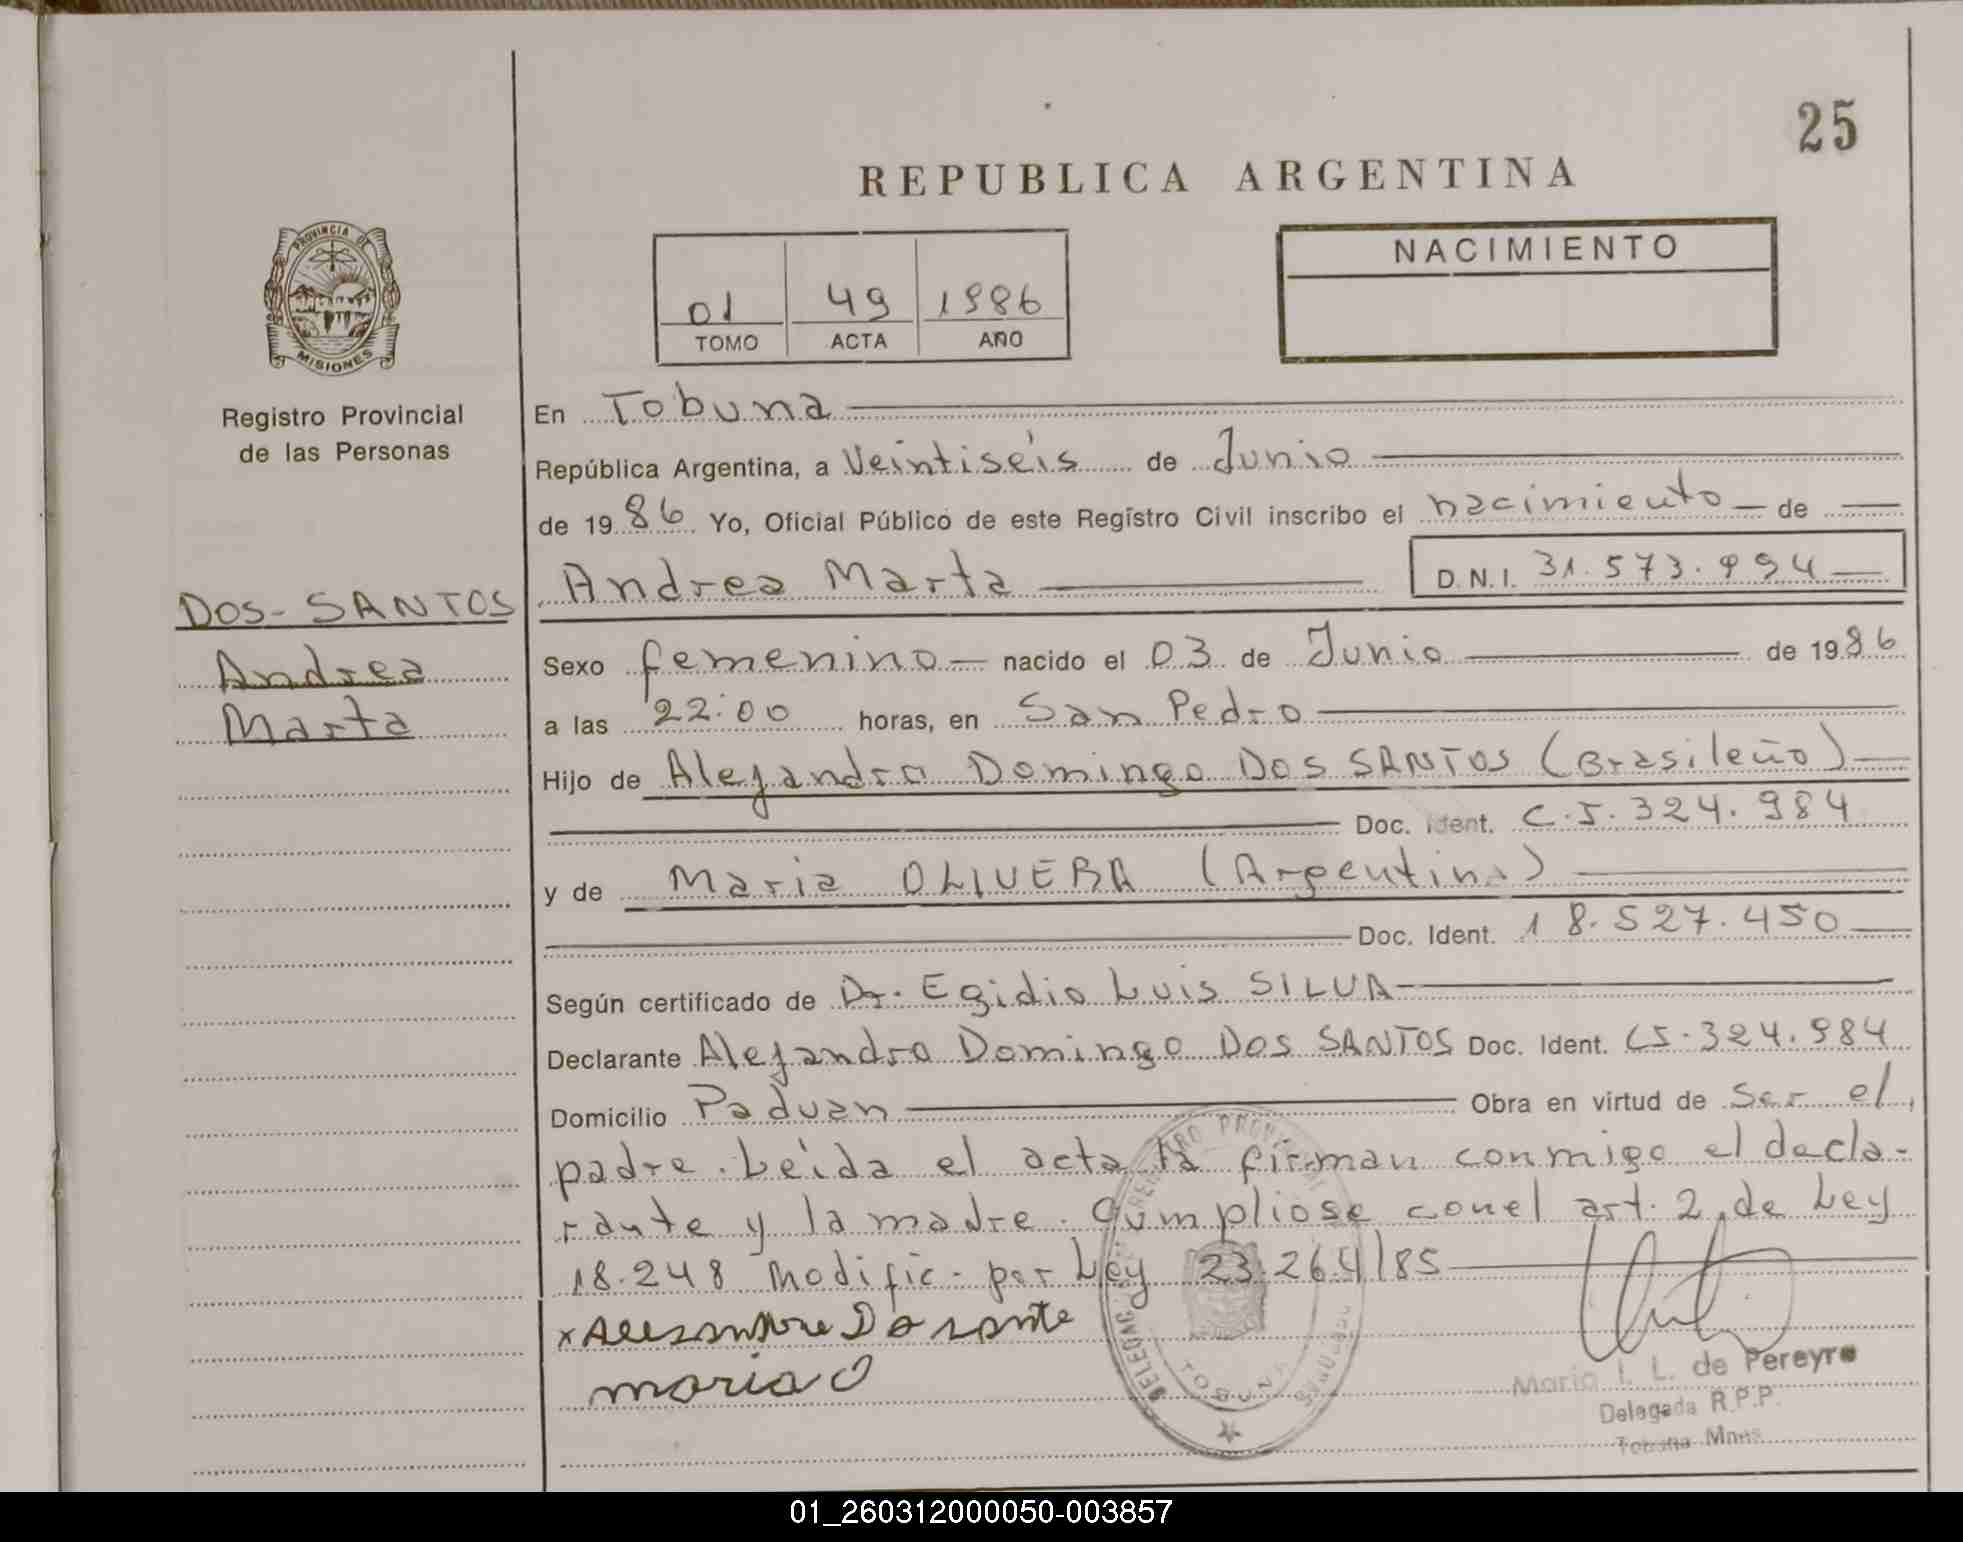 25
REPUBLICA ARGENTINA
PROVINCIA DE
MISIONES
Registro Provincial
de las Personas
01 49 1986
TOMO ACTA AÑO
NACIMIENTO
En Tobuna
República Argentina, a Veintiséis de Junio
de 1986 Yo, Oficial Público de este Registro Civil inscribo el nacimiento de
DOS-SANTOS
Andrea
Marta
Andrea Marta D.N.I. 31.573.994
Sexo femenino nacido el 03 de Junio de 1986
a las 22:00 horas, en San Pedro
Hijo de Alejandro Domingo DOS SANTOS (Brasileño)
Doc. Ident. C.5.324.984
y de Maria OLIVERA (Argentina)
Doc. Ident. 18.527.450
Según certificado de Dr. Egidio Luis SILVA
Declarante Alejandro Domingo DOS SANTOS Doc. Ident. C5.324.984
Domicilio Paduan Obra en virtud de ser el
padre. Leída el acta la firman conmigo el decla-
rante y la madre. Cumpliose con el art. 2 de Ley
18.248 Modific. por Ley 23.264/85
x
Maria O
REGISTRO PROVINCIAL
TOBUNA
Maria I. L. de Pereyra
Delegada R.P.P.
Tobuna Mnes
01_260312000050-003857